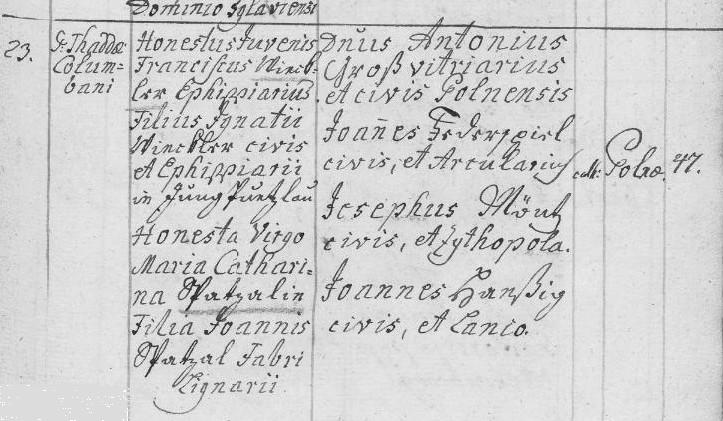 Dominio Iglaviensi
23.
Pr Thaddæ
Colum=
bani
Honestus Juvenis
Franciscus Winck=
ler Ephippiarius
Filius Ignatii
Winckler civis
et Ephippiarii
in Jung
Honesta Virgo
Maria Cathari=
na Spatzalin
Filia Joannis
Spatzal Fabri
Lignarii
Dnus Antonius
Groß vitriarius
et civis Polnensis
Joañes Federspiel
civis, et Arcularius
Josephus Möntz
civis, et Zythopola.
Joannes Hanßig
civis, et Lanio.
Polnæ. 47.